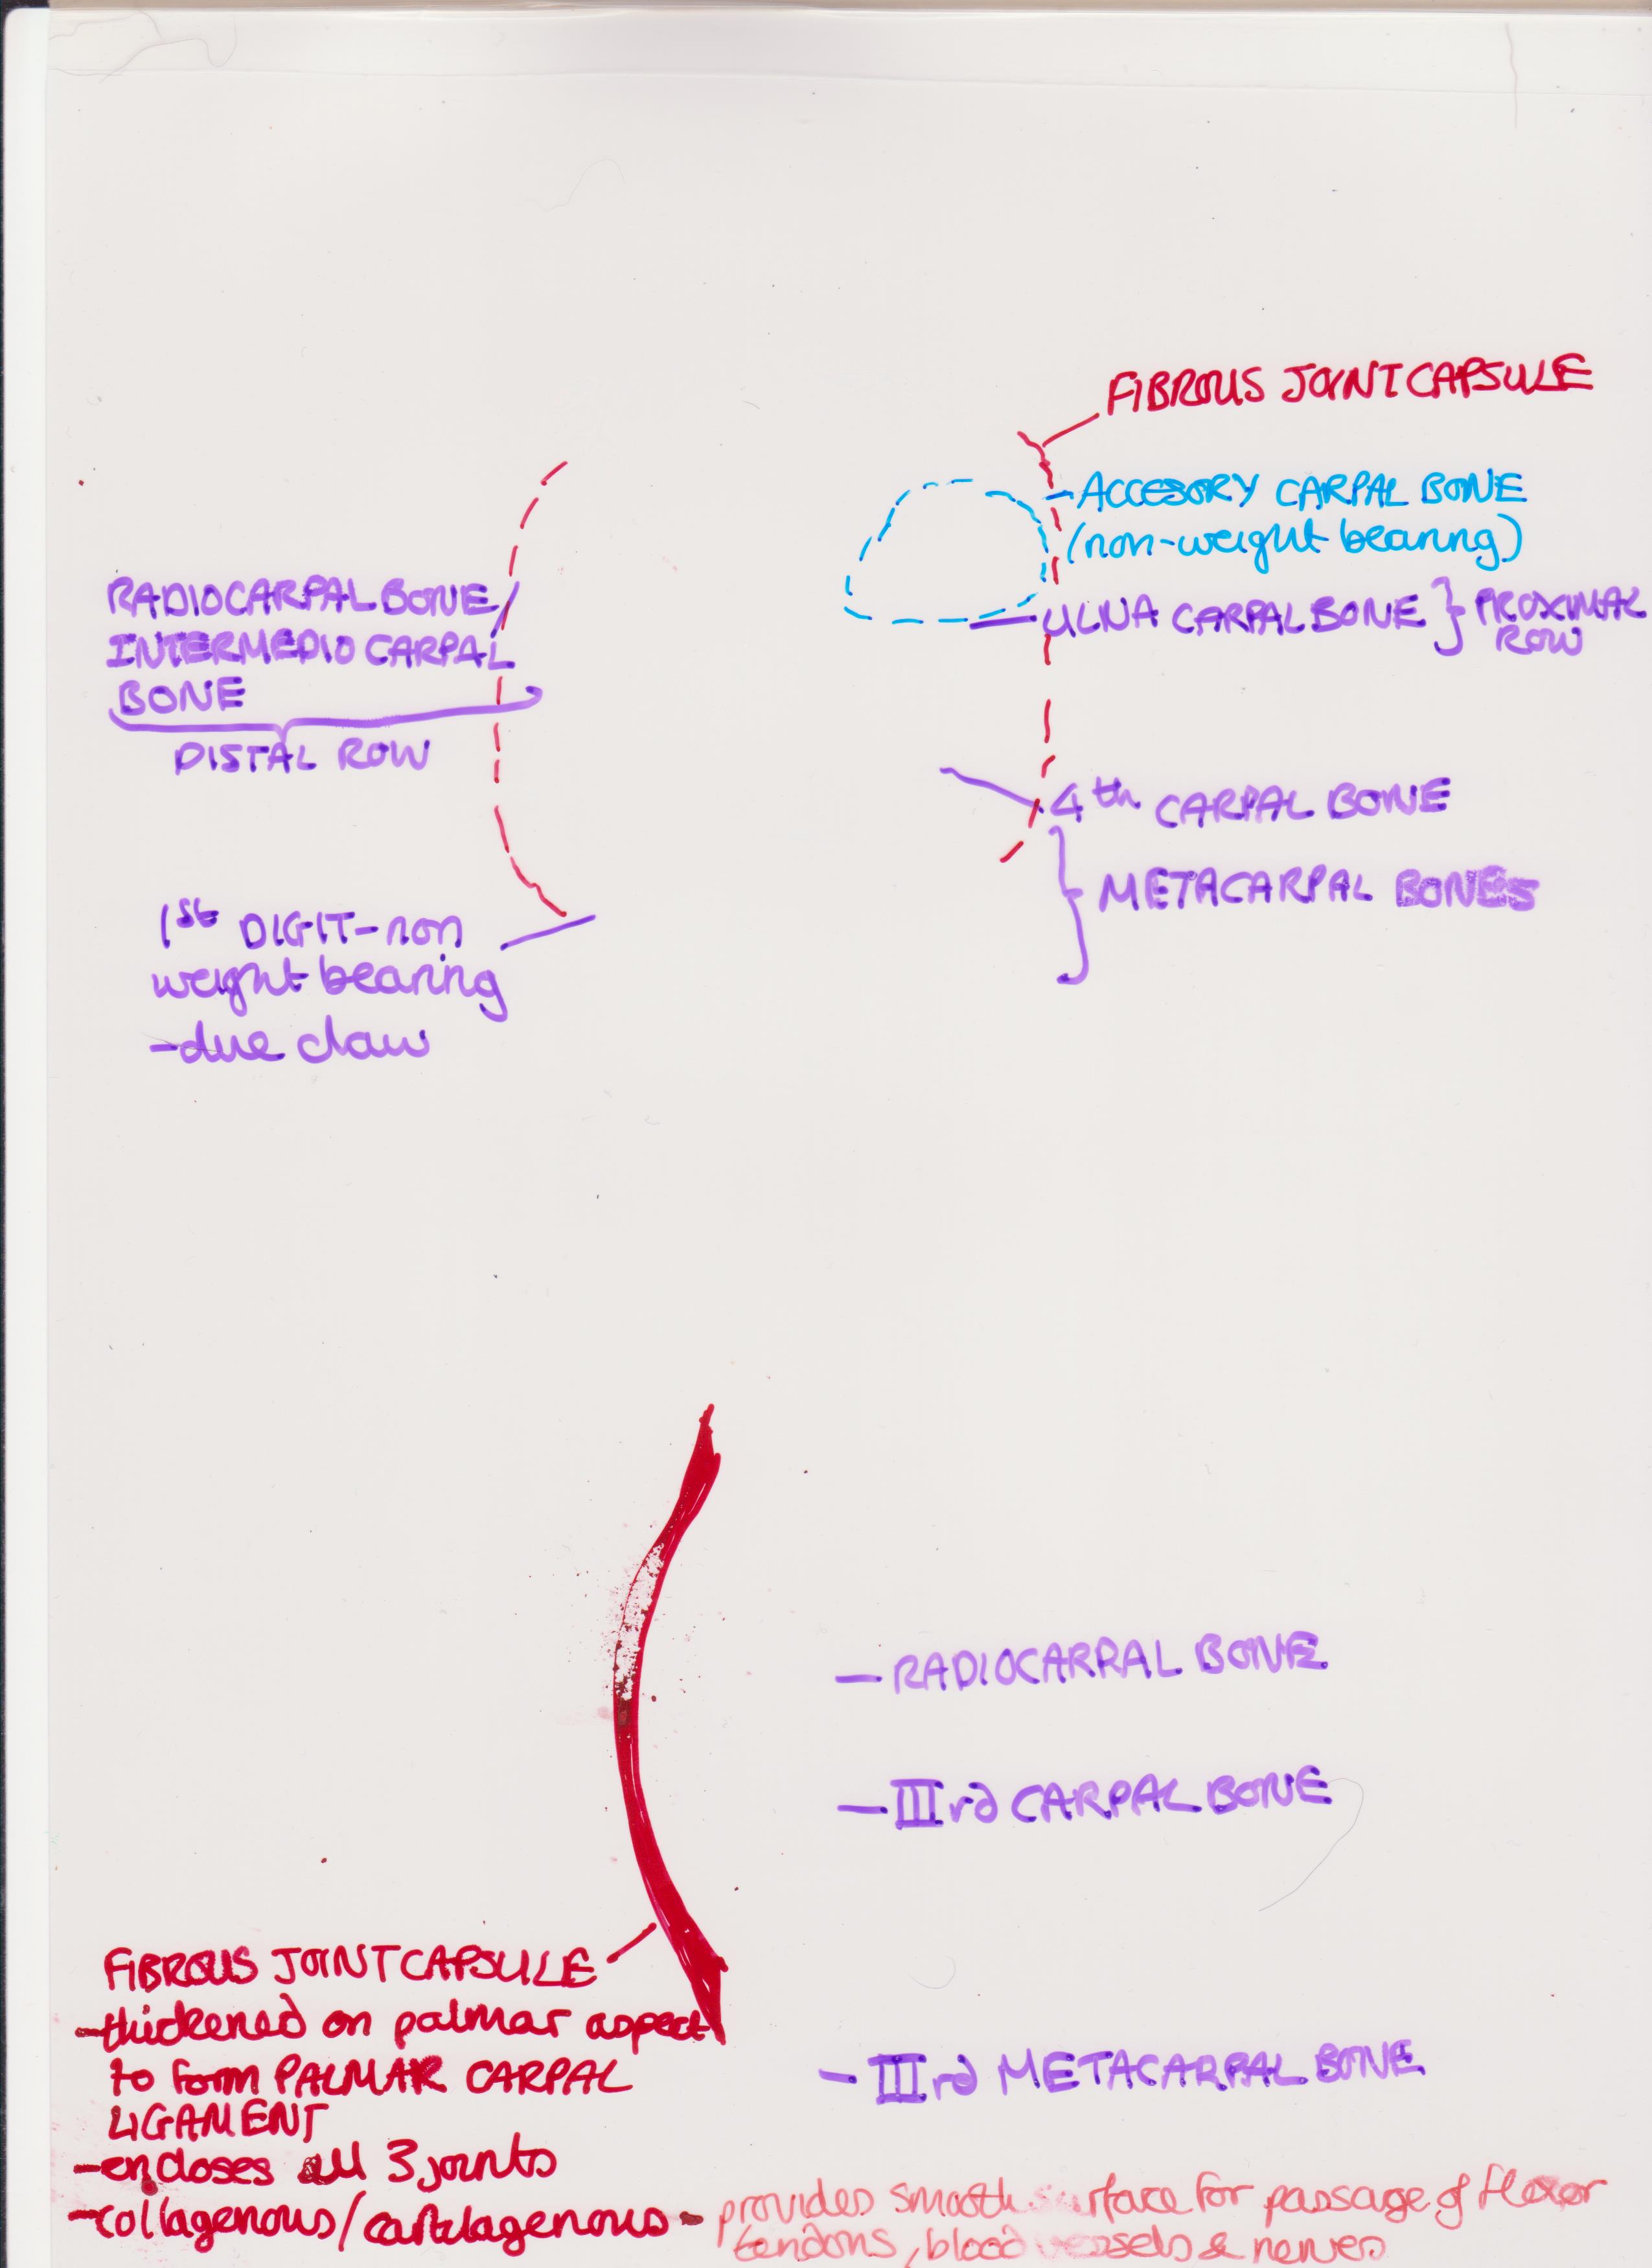 FIBROUS JOINT CAPSULE
ACCESORY CARPAL BONE
(non-weight bearing)
RADIOCARPAL BONE
INTERMEDIO CARPAL
BONE
DISTAL ROW
ULNA CARPAL BONE } PROXIMAL
ROW
4th CARPAL BONE
METACARPAL BONES
1st DIGIT-non
weight bearing
-due claw
- RADIOCARPAL BONE
- IIIrd CARPAL BONE
FIBROUS JOINT CAPSULE
-thickened on palmar aspect
to form PALMAR CARPAL
LIGAMENT
-encloses all 3 joints
-collagenous/cartilagenous - provides smooth surface for passage of flexor
tendons, blood vessels & nerves
- IIIrd METACARPAL BONE